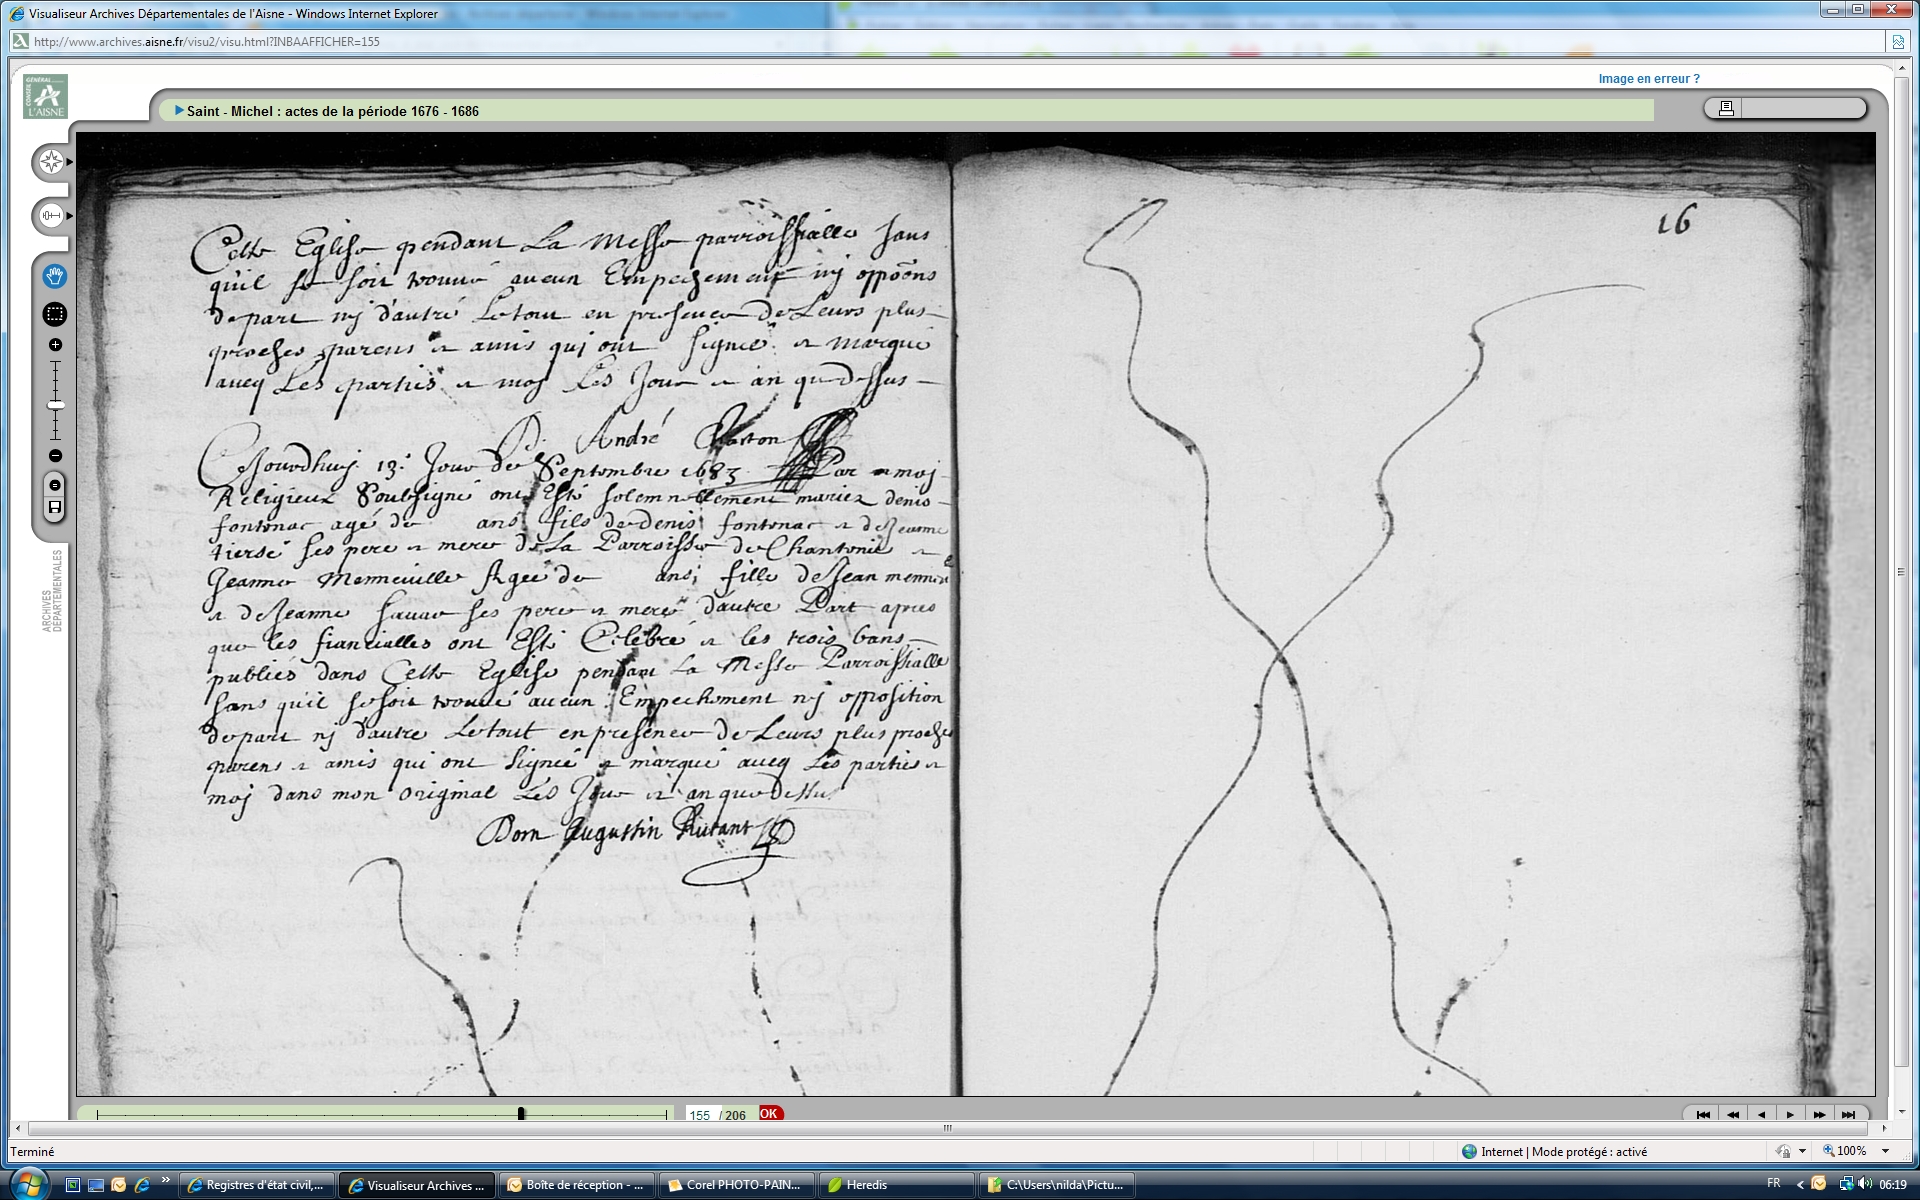 Visualiseur Archives Départementales de l'Aisne - Windows Internet Explorer
http://www.archives.aisne.fr/visu2/visu.html?INBAAFFICHER=155
Image en erreur ?
CONSEIL GÉNÉRAL L'AISNE
Saint - Michel : actes de la période 1676 - 1686
ARCHIVES DÉPARTEMENTALES
Cette Eglise pendant La Messe parroissialle sans
quil se soit trouvé aucun Empechement nij oppoons
de part nij d'autre Le tout en presence De Leurs plus
proches parens et amis qui ont signé et marqué
avecq Les parties et moy Les Jour et an que dessus
D. André Charton
Cejourdhuij 13e Jour de Septembre 1683 Par moj
Religieux Soubsigné ont Esté solemnellement mariez denis
fontenac agé de ans fils de denis fontenac et de Jeanne
tiersé ses pere et mere de La Parroisse de et
Jeanne Menneville Agée de ans fille de Jean
et de Jeanne ses pere et mere d'autre Part apres
que les fiancialles ont Esté Celebré et les trois bans
publiés dans Cette Eglise pendant La Messe Parroissialle
sans qu'il se soit trouvé aucun Empechement nj opposition
de part nj d'autre Le tout en presence de Leurs plus proche
parens et amis qui ont signé et marqué avecq Les parties et
moj dans mon original Les Jour et an que Dessu
Dom Augustin Rutant
16
155 / 206 OK
Terminé
Internet | Mode protégé : activé
100%
Registres d'état civil,...
Visualiseur Archives ...
Boîte de réception - ...
Corel PHOTO-PAIN...
Heredis
C:\Users\nilda\Pictu...
FR
06:19